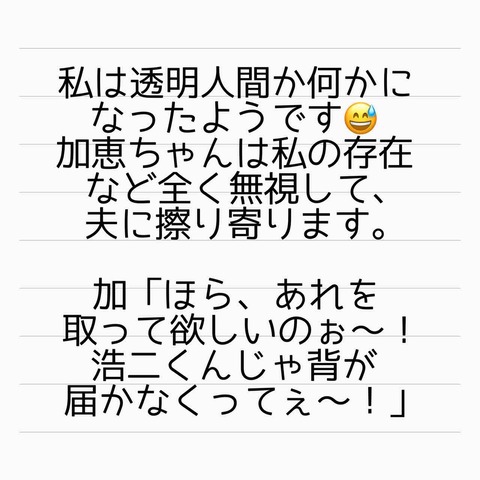 私は透明人間か何かに
なったようです😅
加恵ちゃんは私の存在
など全く無視して、
夫に擦り寄ります。
加「ほら、あれを
取って欲しいのぉ〜！
浩二くんじゃ背が
届かなくってぇ〜！」